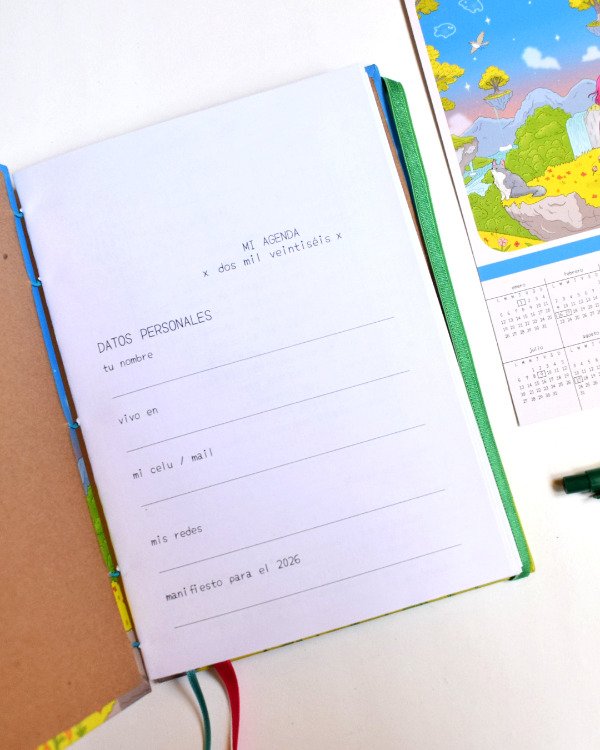 MI AGENDA
x dos mil veintiséis x
DATOS PERSONALES
tu nombre
vivo en
mi celu / mail
mis redes
manifiesto para el 2026
enero
febrero
julio
agosto